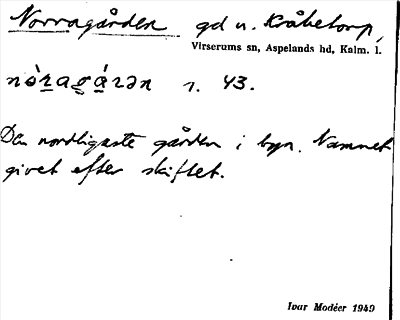 Norragården gd u. Kråketorp,
Virserums sn, Aspelands hd, Kalm. l.
nòragárən r. 43.
Den nordligaste gården i byn. Namnet
givet efter skiftet.
Ivar Modéer 1940